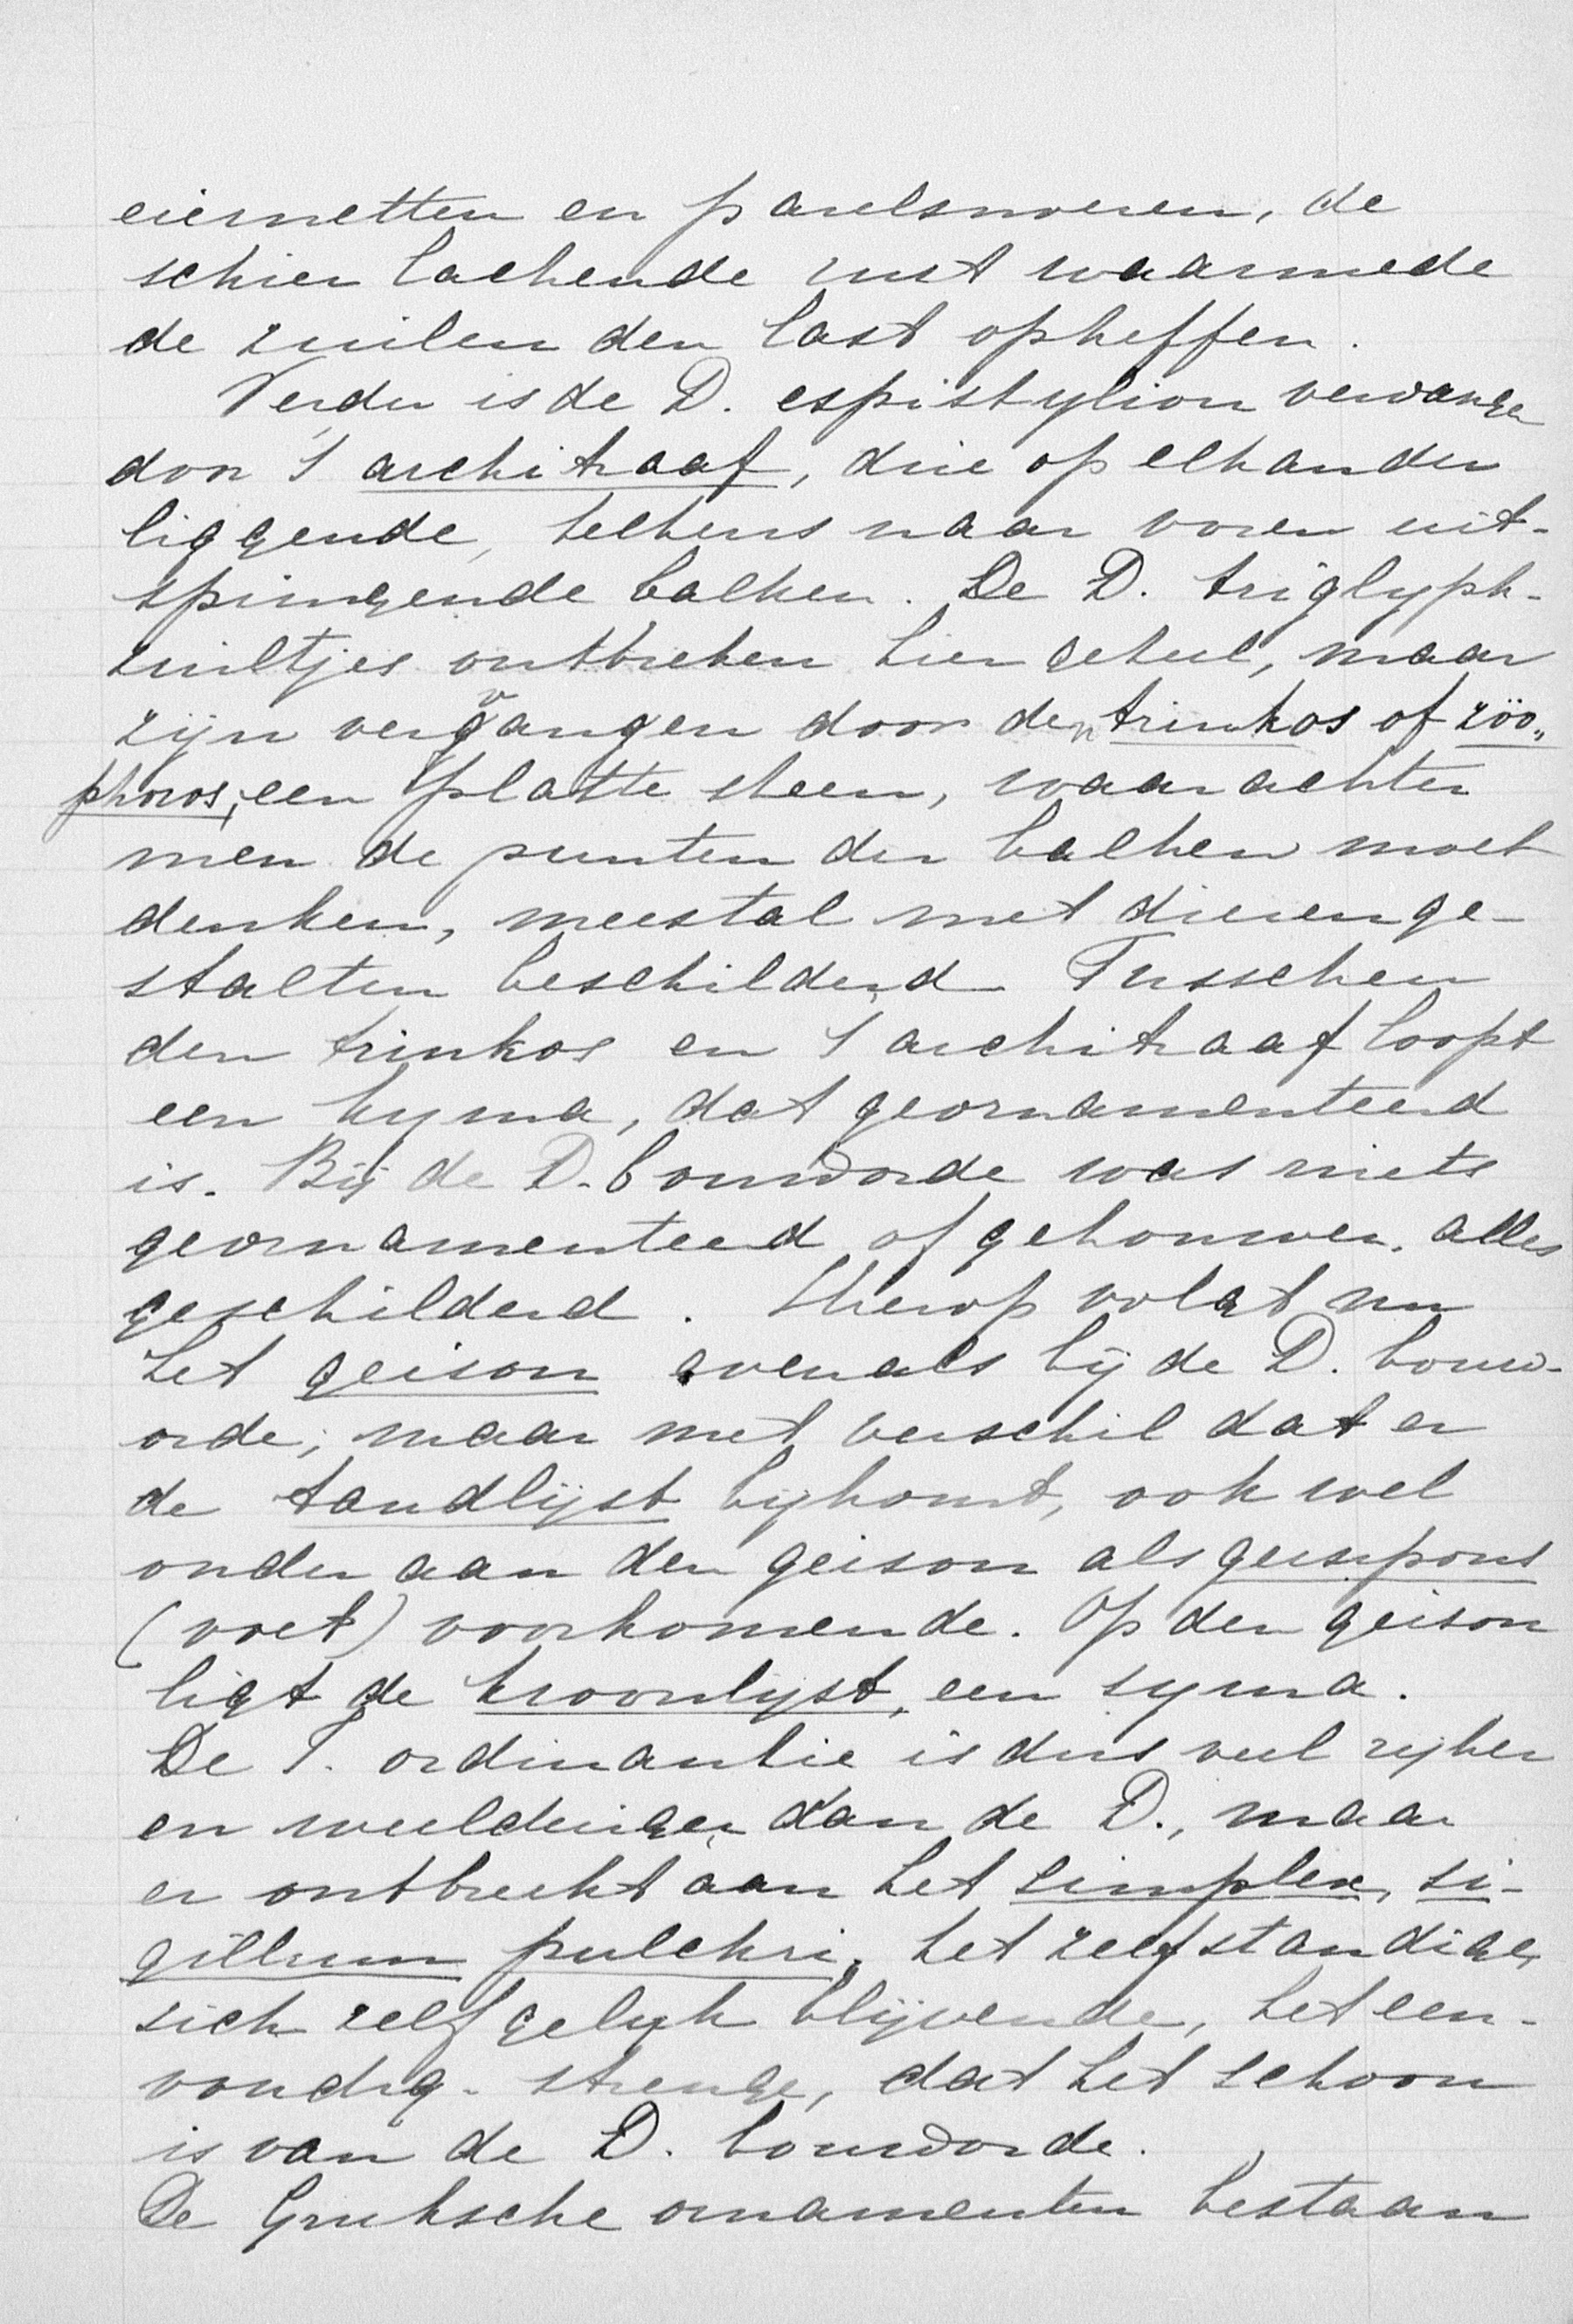 eiernetten en parelsnoeren, de
schier lachende rust waarmede
de zuilen den last opheffen.
Verder is de D. espistylion vervangen
door 1 architraaf, drie op elkander
liggende, telkens naar voren uit-
springende balken. De D. triglyph-
zuiltjes ontbreken hier geheel, maar
zijn vervangen door den trinkos of zöo„
phoros, een platte steen, waarachter
men de punten der balken moet
denken, meestal met dierenge-
stalten beschilderd. Tusschen
den trinkos en 1 architraaf loopt
een kyma, dat geornamenteerd
is. Bij de D. bouworde was niets
geornamenteerd of gehouwen, alles
geschilderd. Hierop volgt nu
het geison evenals bij de D. bouw-
orde; maar met verschil dat er
de tandlijst bijkomt, ook wel
onder aan den geison als geisipous
(voet) voorkomende. Op den geison
ligt de kroonlijst, een syma.
De I. ordinantie is dus veel rijker
en weelderiger dan de D., maar
er ontbreekt aan het simplex, si-
gillum pulchri„ het zelfstandige,
zich zelf gelijk blijvende, het een-
voudig-strenge, dat het schoon
is van de D. bouworde.
De Grieksche ornamenten bestaan